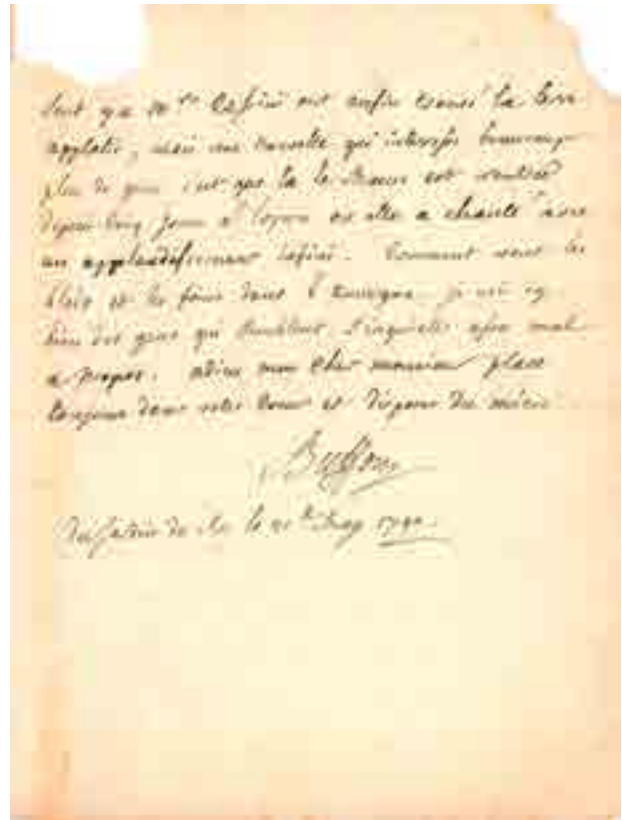 que M.rs Cassini ont enfin trouvé la terre
applatie, mais une nouvelle qui interesse beaucoup
plus de gens c'est que la le Maure est rentrée
depuis cinq jours a l'opera ou elle a chanté avec
un applaudissement infini. Comment vont les
bleds et les foins dans je vois icy
bien des gens qui s'inquieter assez mal
a propos. adieu mon cher monsieur place
toujours dans votre coeur et disposez du mien
Buffon
Du Jardin du Roy le may 1740.